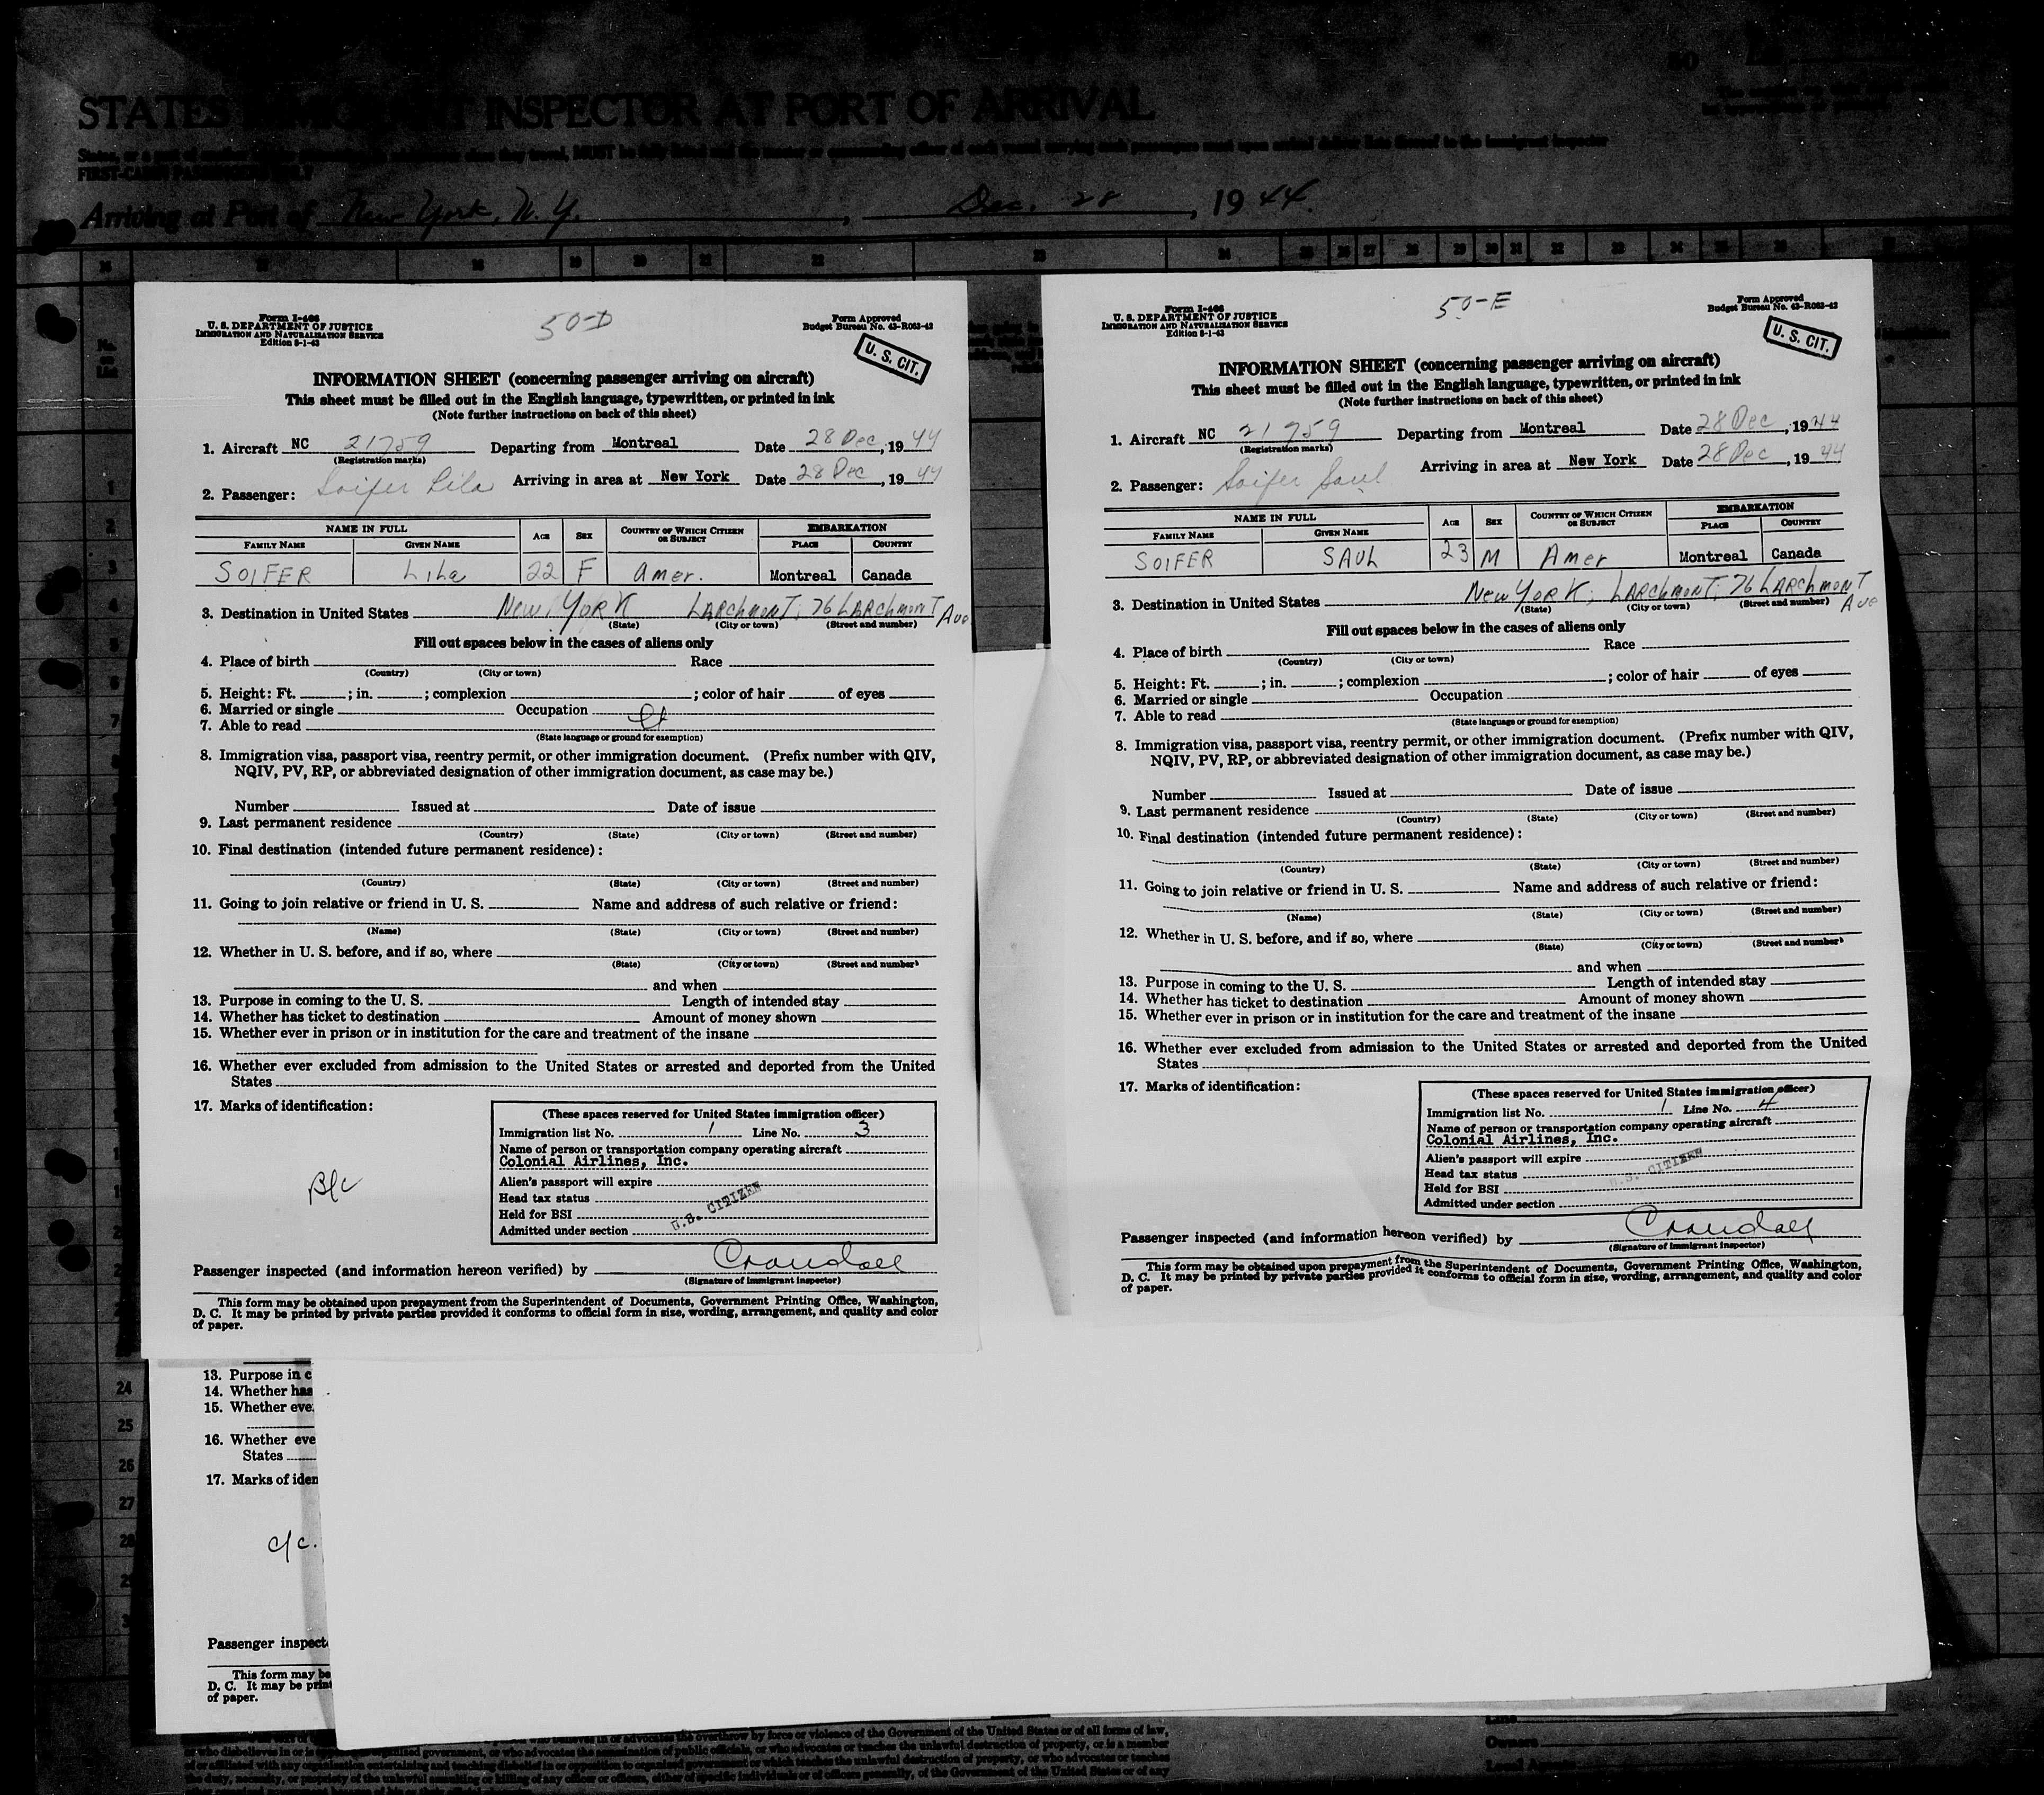 STATES IMMIGRANT INSPECTOR AT PORT OF ARRIVAL
Arriving at Port of New York, N. Y., Dec. 28, 1944.
Form I-466
U. S. DEPARTMENT OF JUSTICE
IMMIGRATION AND NATURALIZATION SERVICE
Edition 8-1-43
50-D
Form Approved
Budget Bureau No. 43-R063-42
U. S. CIT.
INFORMATION SHEET (concerning passenger arriving on aircraft)
This sheet must be filled out in the English language, typewritten, or printed in ink
(Note further instructions on back of this sheet)
1. Aircraft NC 21759 Departing from Montreal Date 28 Dec, 1944
(Registration marks)
Arriving in area at New York Date 28 Dec, 1944
2. Passenger: Soifer Lila
NAME IN FULL AGE SEX COUNTRY OF WHICH CITIZEN OR SUBJECT EMBARKATION
FAMILY NAME GIVEN NAME PLACE COUNTRY
SOIFER LiLa 22 F Amer. Montreal Canada
3. Destination in United States New YORK LARCHMONT, 76 LARCHMONT Ave
(State) (City or town) (Street and number)
Fill out spaces below in the cases of aliens only
4. Place of birth Race
(Country) (City or town)
5. Height: Ft. ; in. ; complexion ; color of hair of eyes
6. Married or single Occupation
7. Able to read
(State language or ground for exemption)
8. Immigration visa, passport visa, reentry permit, or other immigration document. (Prefix number with QIV,
NQIV, PV, RP, or abbreviated designation of other immigration document, as case may be.)
Number Issued at Date of issue
9. Last permanent residence
(Country) (State) (City or town) (Street and number)
10. Final destination (intended future permanent residence):
(Country) (State) (City or town) (Street and number)
11. Going to join relative or friend in U. S. Name and address of such relative or friend:
(Name) (State) (City or town) (Street and number)
12. Whether in U. S. before, and if so, where
(State) (City or town) (Street and number)
and when
13. Purpose in coming to the U. S. Length of intended stay
14. Whether has ticket to destination Amount of money shown
15. Whether ever in prison or in institution for the care and treatment of the insane
16. Whether ever excluded from admission to the United States or arrested and deported from the United
States
17. Marks of identification:
B/c
(These spaces reserved for United States immigration officer)
Immigration list No. 1 Line No. 3
Name of person or transportation company operating aircraft
Colonial Airlines, Inc.
Alien's passport will expire
Head tax status
Held for BSI
U.S. CITIZEN
Admitted under section
Passenger inspected (and information hereon verified) by Crandall
(Signature of immigrant inspector)
This form may be obtained upon prepayment from the Superintendent of Documents, Government Printing Office, Washington,
D. C. It may be printed by private parties provided it conforms to official form in size, wording, arrangement, and quality and color
of paper.
Form I-466
U. S. DEPARTMENT OF JUSTICE
IMMIGRATION AND NATURALIZATION SERVICE
Edition 8-1-43
50-E
Form Approved
Budget Bureau No. 43-R063-42
U. S. CIT.
INFORMATION SHEET (concerning passenger arriving on aircraft)
This sheet must be filled out in the English language, typewritten, or printed in ink
(Note further instructions on back of this sheet)
1. Aircraft NC 21759 Departing from Montreal Date 28 Dec, 1944
(Registration marks)
Arriving in area at New York Date 28 Dec, 1944
2. Passenger: Soifer Saul
NAME IN FULL AGE SEX COUNTRY OF WHICH CITIZEN OR SUBJECT EMBARKATION
FAMILY NAME GIVEN NAME PLACE COUNTRY
SOIFER SAUL 23 M Amer Montreal Canada
3. Destination in United States New YORK, LARCHMONT, 76 LARCHMONT Ave
(State) (City or town) (Street and number)
Fill out spaces below in the cases of aliens only
4. Place of birth Race
(Country) (City or town)
5. Height: Ft. ; in. ; complexion ; color of hair of eyes
6. Married or single Occupation
7. Able to read
(State language or ground for exemption)
8. Immigration visa, passport visa, reentry permit, or other immigration document. (Prefix number with QIV,
NQIV, PV, RP, or abbreviated designation of other immigration document, as case may be.)
Number Issued at Date of issue
9. Last permanent residence
(Country) (State) (City or town) (Street and number)
10. Final destination (intended future permanent residence):
(Country) (State) (City or town) (Street and number)
11. Going to join relative or friend in U. S. Name and address of such relative or friend:
(Name) (State) (City or town) (Street and number)
12. Whether in U. S. before, and if so, where
(State) (City or town) (Street and number)
and when
13. Purpose in coming to the U. S. Length of intended stay
14. Whether has ticket to destination Amount of money shown
15. Whether ever in prison or in institution for the care and treatment of the insane
16. Whether ever excluded from admission to the United States or arrested and deported from the United
States
17. Marks of identification:
(These spaces reserved for United States immigration officer)
Immigration list No. 1 Line No. 4
Name of person or transportation company operating aircraft
Colonial Airlines, Inc.
Alien's passport will expire
Head tax status
U.S. CITIZEN
Held for BSI
Admitted under section
Passenger inspected (and information hereon verified) by Crandall
(Signature of immigrant inspector)
This form may be obtained upon prepayment from the Superintendent of Documents, Government Printing Office, Washington,
D. C. It may be printed by private parties provided it conforms to official form in size, wording, arrangement, and quality and color
of paper.
13. Purpose in c
14. Whether has
15. Whether eve
16. Whether eve
States
17. Marks of iden
c/c.
Passenger inspect
This form may be
D. C. It may be print
of paper.
24
25
26
27
Owners